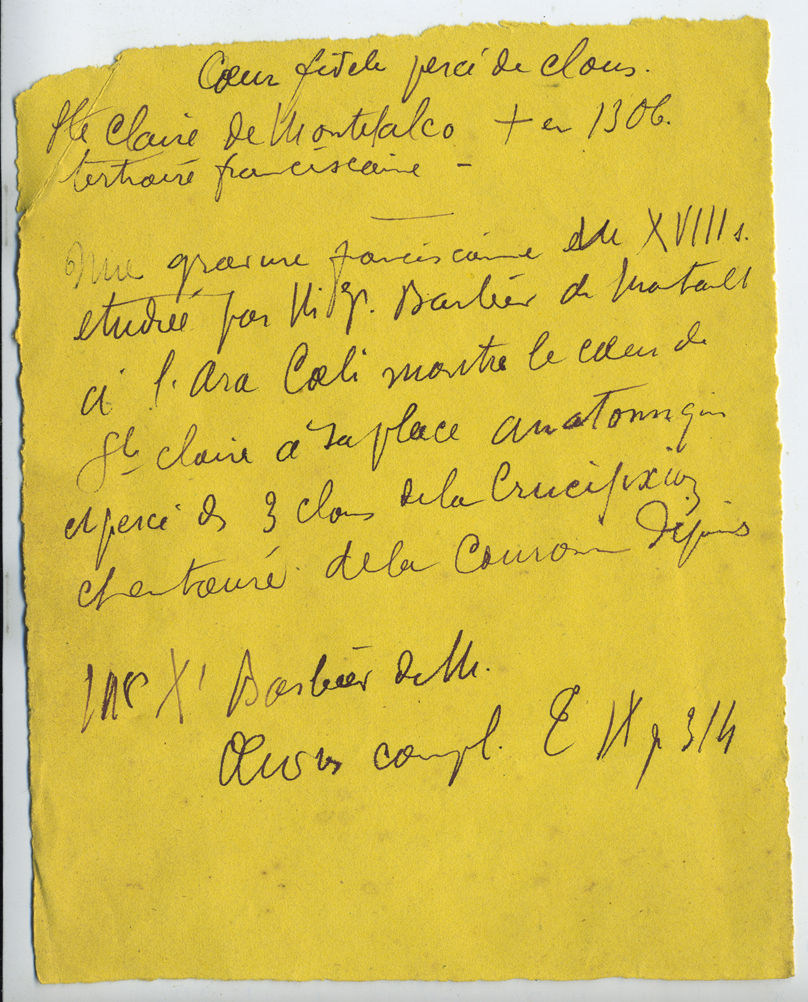 Cœur fidele percé de clous.
Ste Claire de Montefalco + en 1306.
tertiaire franciscaine –
Une gravure franciscaine du XVIII s.
etudiée par Mgr. Barbier de Montault
à l'Ara Cœli montre le cœur de
Ste claire à sa place anatomique
et percé des 3 clous de la Crucifixion
et entouré de la Couronne d'épines
X. Barbier de M.
Œuvres compl. T IX p 314